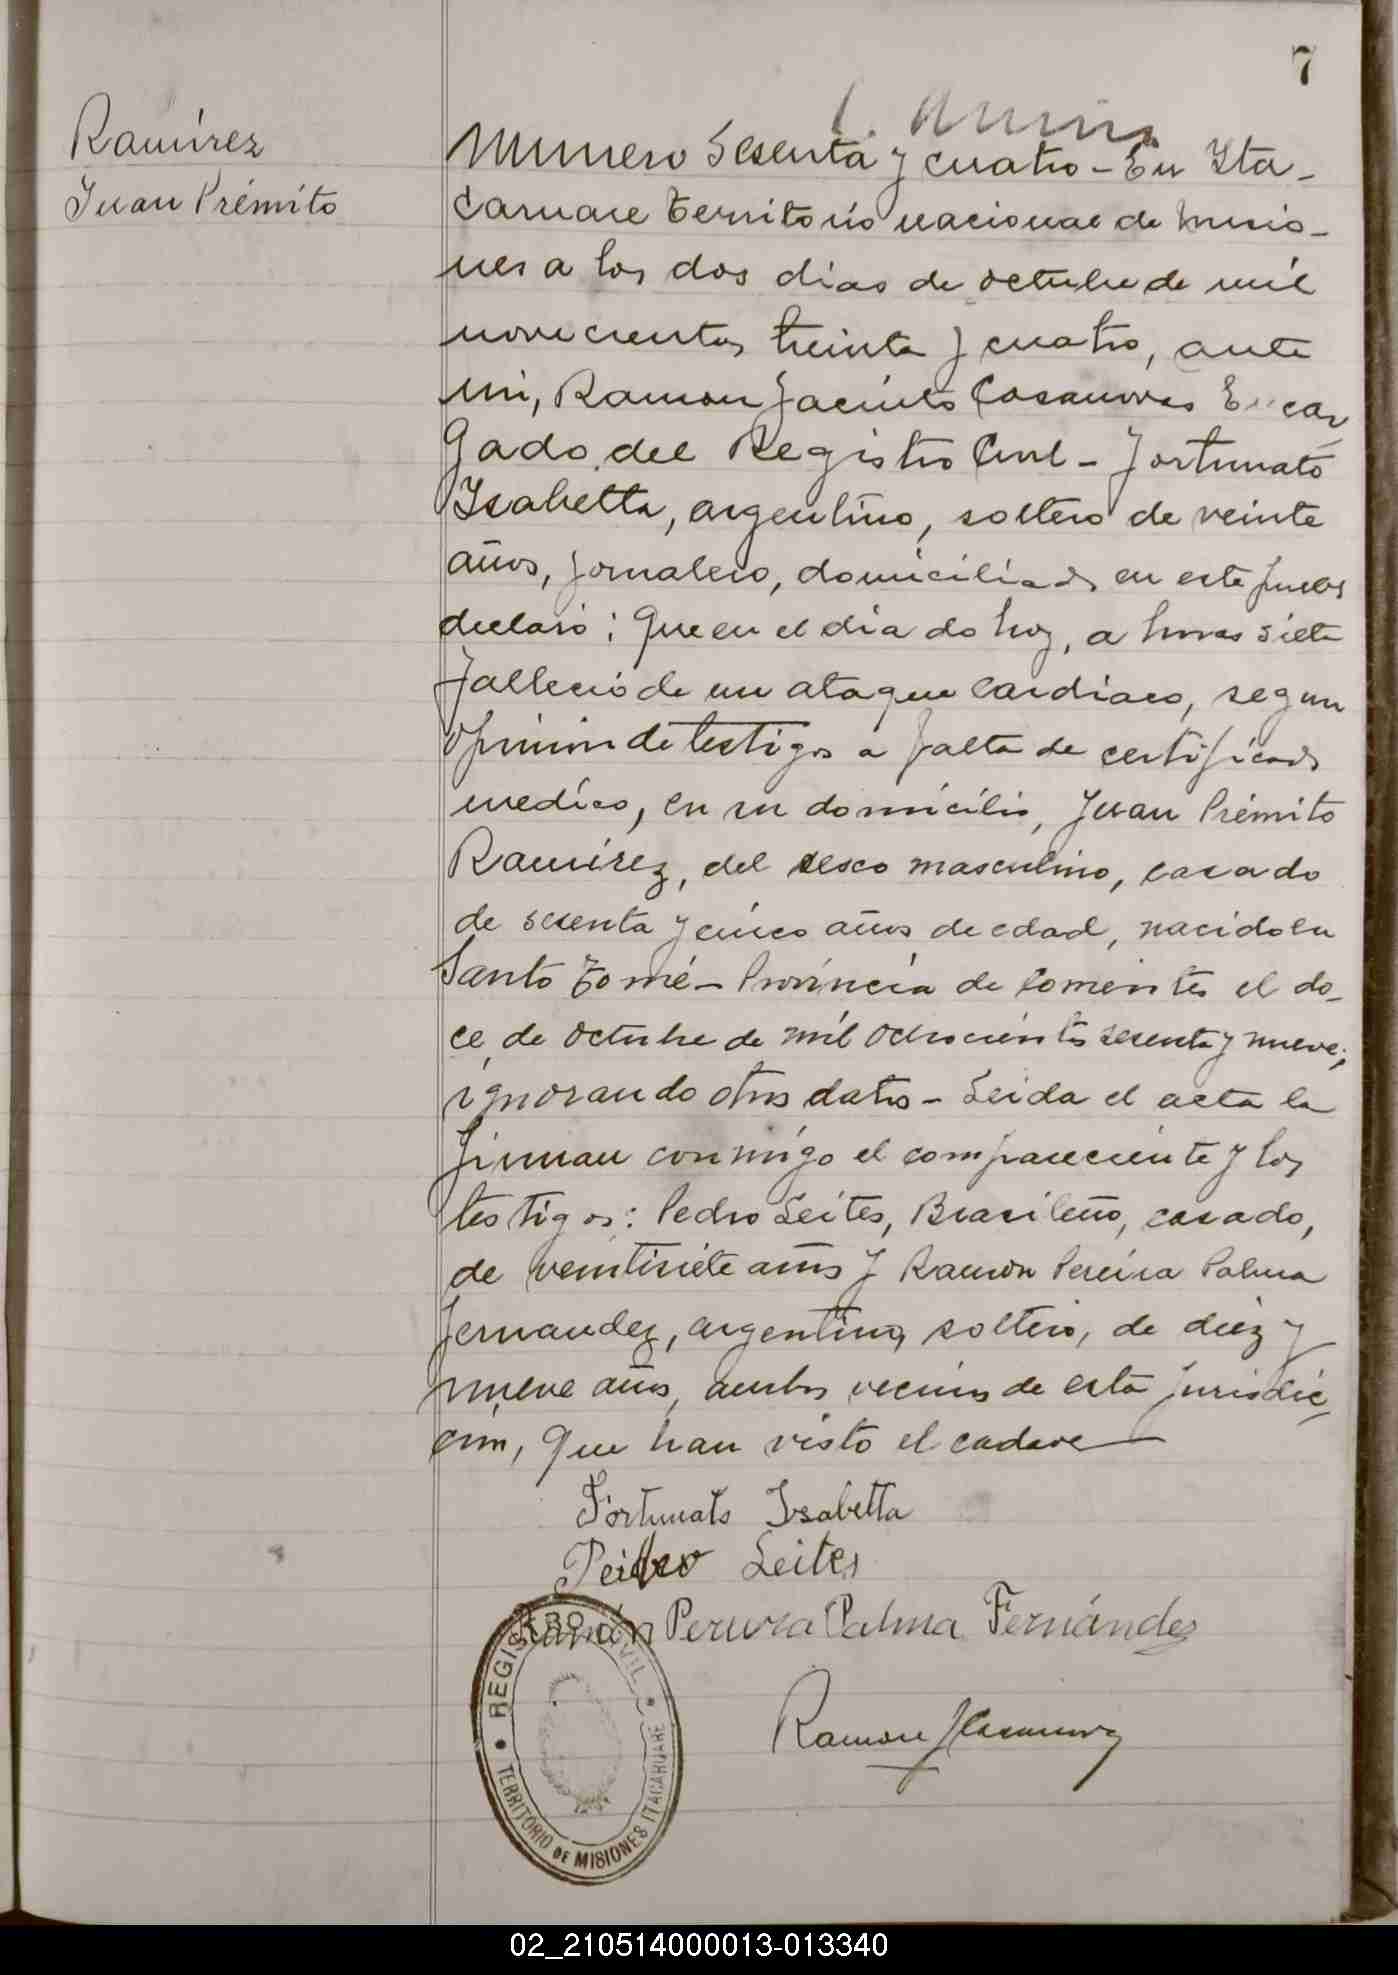 7
Ramírez
Juan Prémito
Numero Sesenta y cuatro - En Ita-
caruare Territorio nacional de Misio-
nes a los dos dias de octubre de mil
novecientos treinta y cuatro, ante
mi, Ramon Jacinto Casanovas Encar-
gado del Registro Civil - Fortunato
Isabetta, argentino, soltero de veinte
años, jornalero, domiciliado en este pueblo
declaró: Que en el dia do hoy, a horas siete
falleció de un ataque cardiaco, segun
opinion de testigos a falta de certificado
medico, en su domicilio, Juan Prémito
Ramírez, del sesco masculino, casado
de sesenta y cinco años de edad, nacido en
Santo Tomé - Província de Corrientes el do-
ce de octubre de mil ochocientos sesenta y nueve;
ignorando otros datos - Leida el acta la
firman conmigo el compareciente y los
testigos: Pedro Leites, Brasileño, casado,
de veintisiete años y Ramón Pereira Palma
Fernandez, argentino, soltero, de diez y
nueve años, ambos vecinos de esta jurisdic-
cion, que han visto el cadave
Fortunato Isabetta
Peidro Leites
Ramón Perura Palma Fernández
Ramon J Casanova
REGISTRO CIVIL
TERRITORIO DE MISIONES ITACARUARE
02_210514000013-013340